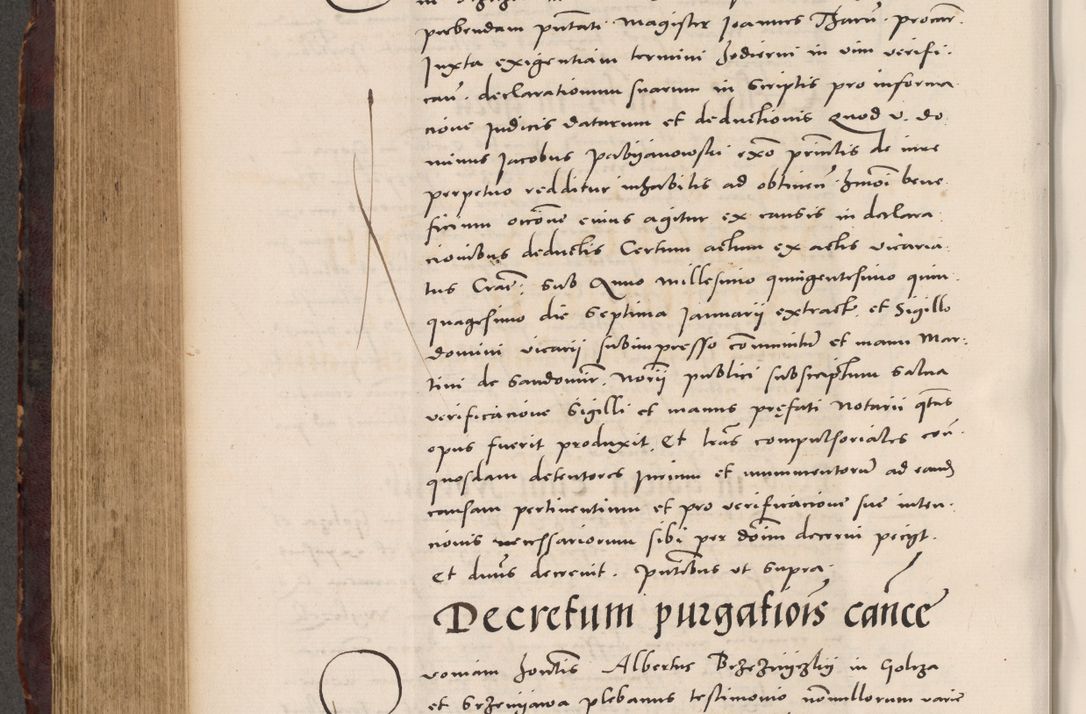 prebendam pntati Magister Joannes Tharn. procur.
Juxta exigentiam termini hodierni in vim verifi-
caū. declarationum suarum in Scriptis pro informa-
cione Judicis datarum et deductionis Quod v. do-
minus Jacobus Pabyanowski exō prīnctis de iure
perpetuo redditur inhabilis ad obtinen. hmōi bene-
ficium occōne cuius agitur ex causis in declara-
cionibus deductis Certum actum ex actis vicaria-
tus Crac. sub Anno Millesimo quingentesimo quin-
quagesimo die Septima Januarii extract. et Sigillo
domini vicarii subimpresso cōmunitū et manu Mar-
tini de Sandomir. Norii publici subscriptum salva
verificacione Sigilli et manus prefati Notarii qtens
opus fuerit produxit. Et lras compulsoriales con.
quosdam detentores Jurium et munimentorū ad eand
causam pertinentium et pro verificacione sue inten-
cionis necessariorum sibi per dōim decerni peciit.
Et dnus decrevit. pntibus ut supra.
Decretum purgationis cance
Quoniam hontis Albertus Brzezniczky in Golcza
et Srzeniawa plebanus testimonio nōnullorum varie